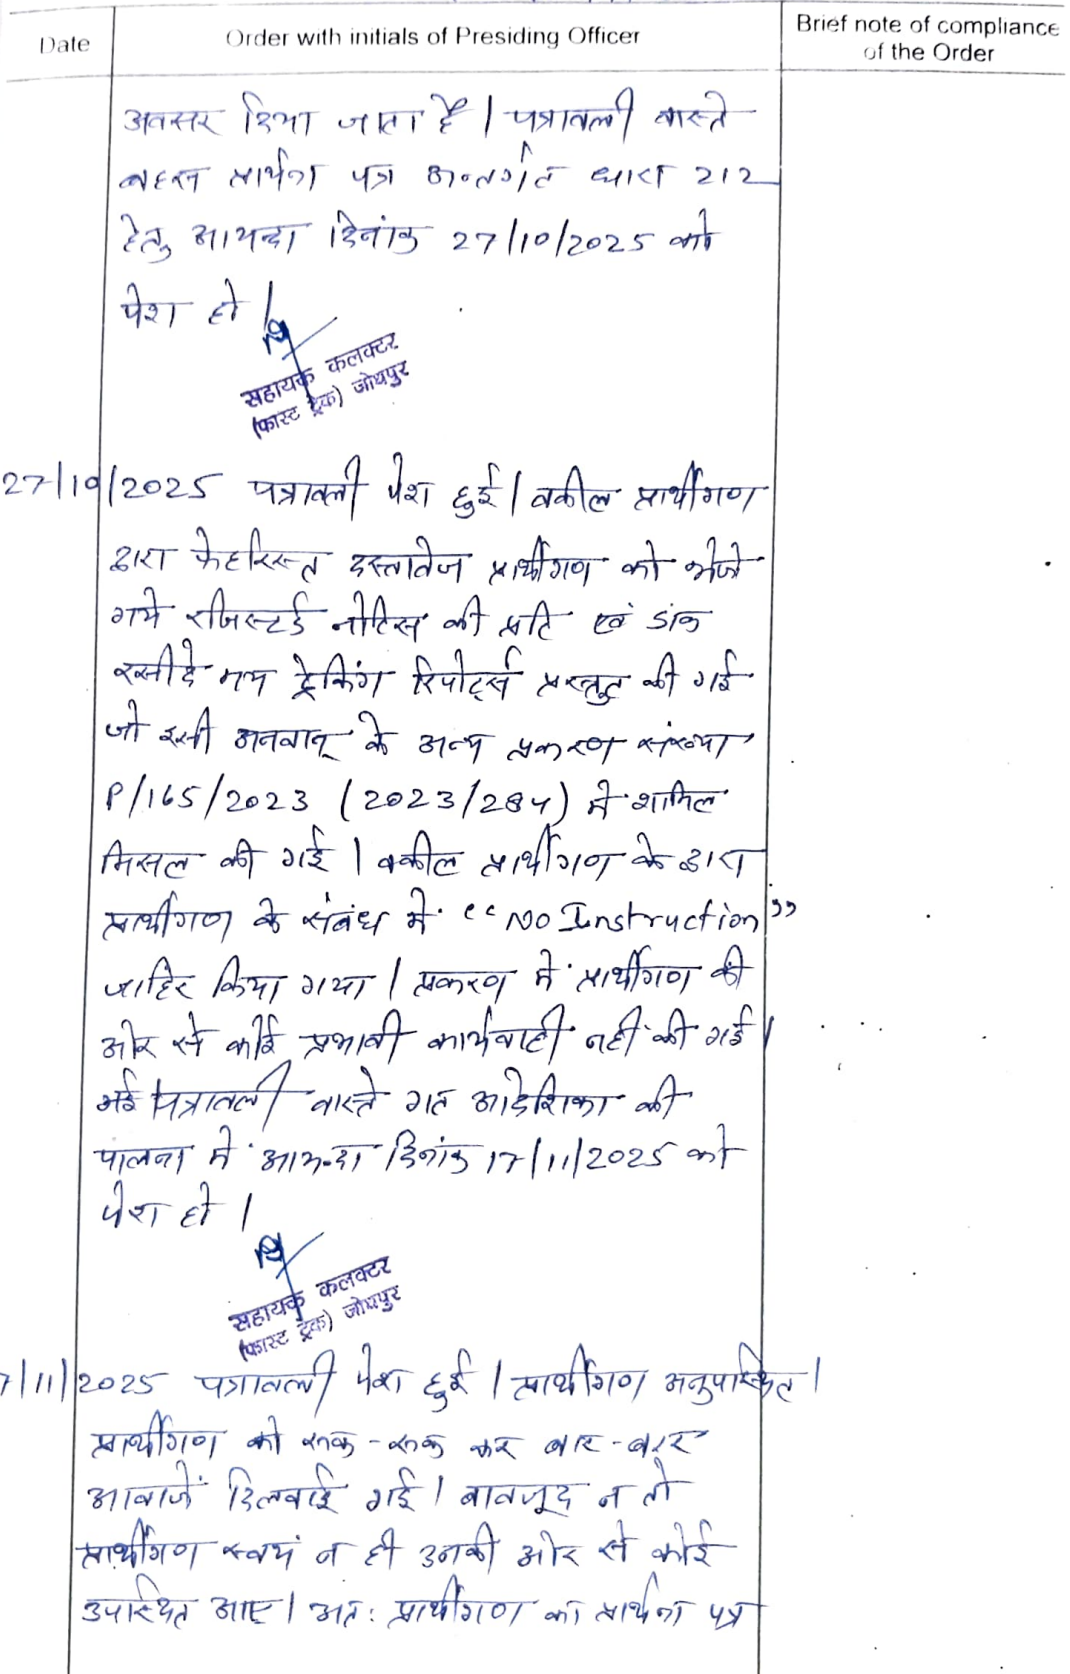 Date
Order with initials of Presiding Officer
Brief note of compliance
of the Order
अवसर दिया जाता है | पत्रावली वास्ते
बहस प्रार्थना पत्र अन्तर्गत धारा 212
हेतु आयन्दा दिनांक 27/10/2025 को
पेश हो |
सहायक कलक्टर
(फास्ट ट्रेक) जोधपुर
27/10/2025 पत्रावली पेश हुई | वकील प्रार्थीगण
द्वारा फेहरिस्त दस्तावेज प्रार्थीगण को भेजे
गये रजिस्टर्ड नोटिस की प्रति एवं डाक
रसीदे मय ट्रेकिंग रिपोर्ट्स प्रस्तुत की गई
जो इसी अनवान् के अन्य प्रकरण संख्या
P/165/2023 (2023/284) में शामिल
मिसल की गई | वकील प्रार्थीगण के द्वारा
प्रार्थीगण के संबंध में "No Instruction"
जाहिर किया गया | प्रकरण में प्रार्थीगण की
ओर से कोई प्रभावी कार्यवाही नहीं की गई |
पत्रावली वास्ते गत आदेशिका की
पालना में आयन्दा दिनांक 17/11/2025 को
पेश हो |
सहायक कलक्टर
(फास्ट ट्रेक) जोधपुर
7/11/2025 पत्रावली पेश हुई | प्रार्थीगण अनुपस्थित |
प्रार्थीगण को रूक-रूक कर बार-बार
आवाजें दिलवाई गई | बावजूद न तो
प्रार्थीगण स्वयं न ही उनकी ओर से कोई
उपस्थित आए | अत: प्रार्थीगण का प्रार्थना पत्र